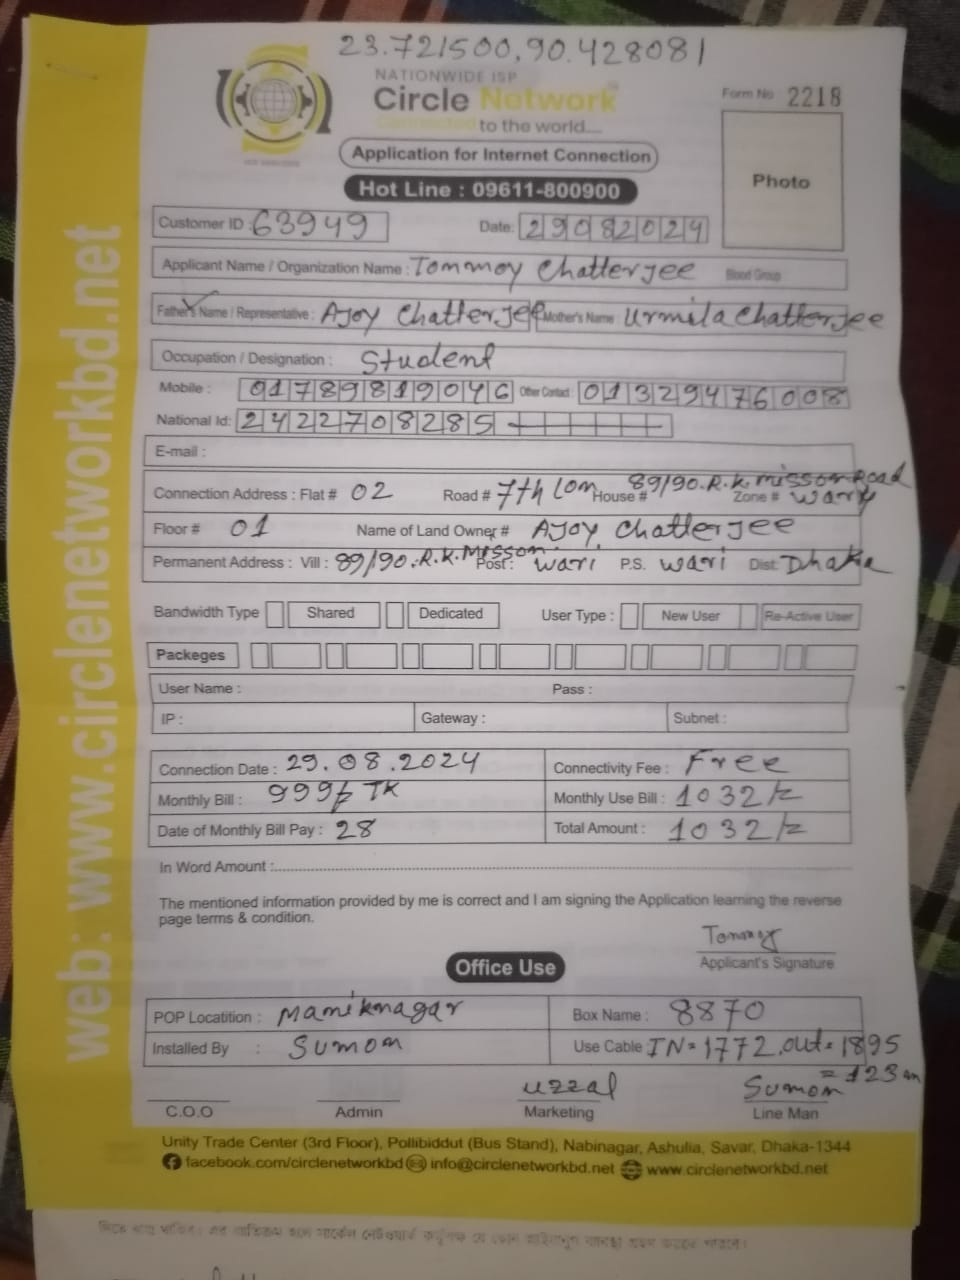 23.721500,90.428081
NATIONWIDE ISP
Circle Network
Connected to the world....
Form No 2218
Photo
Application for Internet Connection
Hot Line : 09611-800900
Customer ID : 63949 Date: 29082024
Applicant Name / Organization Name : Tommoy Chatterjee Blood Group :
Father's Name / Representative : Ajoy Chatterjee Mother's Name : Urmila Chatterjee
Occupation / Designation : Student
Mobile : 01789819046 Other Contact : 01329476008
National Id: 2422708285
E-mail :
Connection Address : Flat # 02 Road # 7th Lon House # 89/90.R.K.misson Road Zone # wary
Floor # 01 Name of Land Owner # AJoy Chatterjee
Permanent Address : Vill : 89/90.R.K.Misson Post : wari P.S. wari Dist: Dhaka
Bandwidth Type Shared Dedicated User Type : New User Re-Active User
Packeges
User Name : Pass :
IP : Gateway : Subnet :
Connection Date : 29.08.2024 Connectivity Fee : Free
Monthly Bill : 999/= TK Monthly Use Bill : 1032/=
Date of Monthly Bill Pay : 28 Total Amount : 1032/=
In Word Amount :
The mentioned information provided by me is correct and I am signing the Application learning the reverse
page terms & condition.
Tommoy
Applicant's Signature
Office Use
POP Locatition : Maniknagar Box Name : 8870
Installed By : Sumon Use Cable : IN=1772, out=1895
=123 m
uzzal Sumon
C.O.O Admin Marketing Line Man
Unity Trade Center (3rd Floor), Pollibiddut (Bus Stand), Nabinagar, Ashulia, Savar, Dhaka-1344
facebook.com/circlenetworkbd info@circlenetworkbd.net www.circlenetworkbd.net
web: www.circlenetworkbd.net